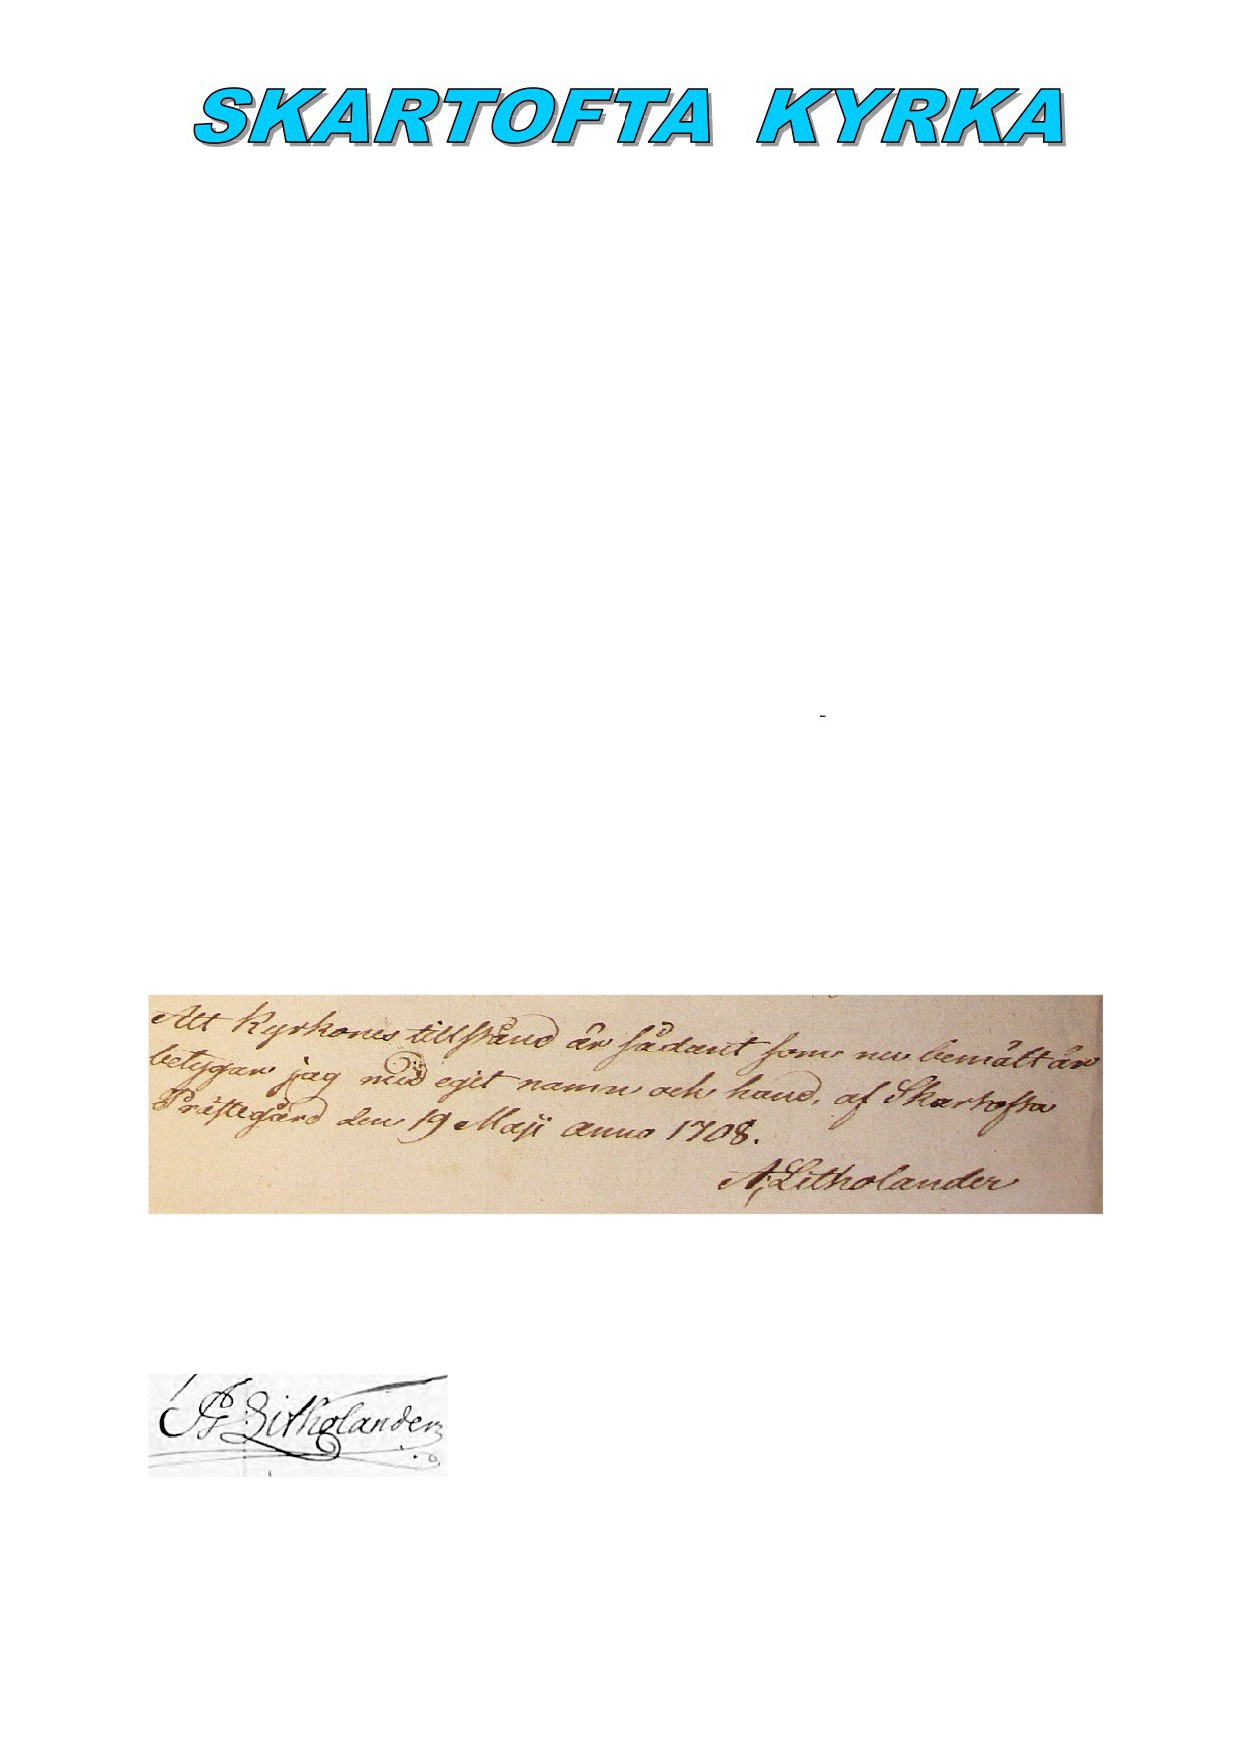 SKARTOFTA KYRKA
-
Att Kyrkones tillstånd är sådant som nu bemält är
betygar jag med eget namn och hand, af Skartofta
Prästegård den 19 Maji anno 1708.
A. Litholander
A Litholander